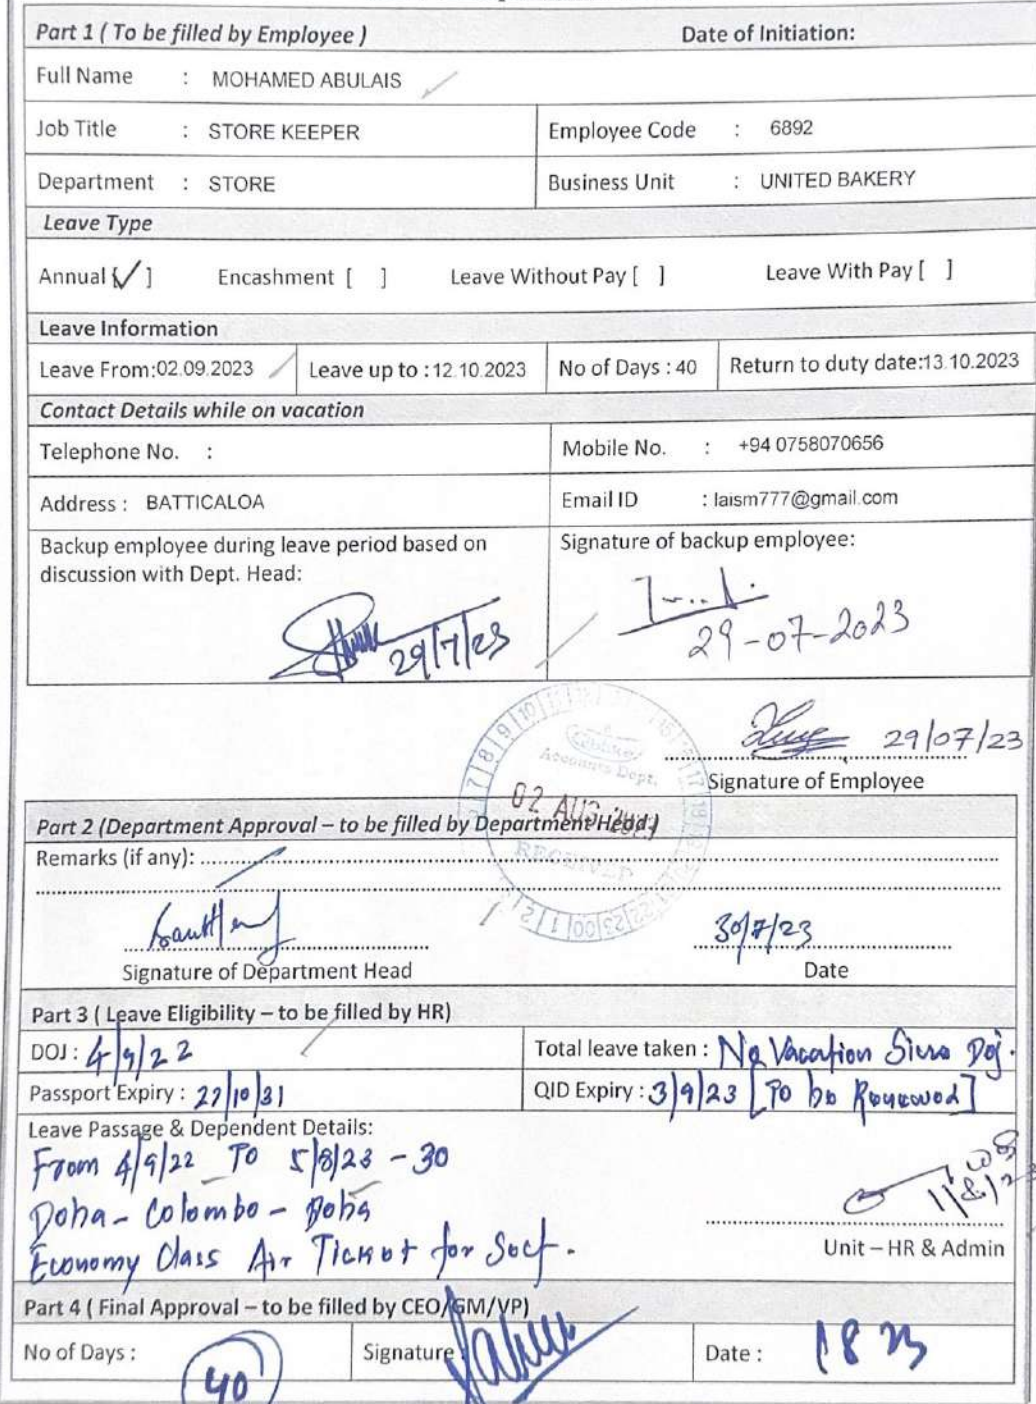 Part 1 ( To be filled by Employee ) Date of Initiation:
Full Name : MOHAMED ABULAIS
Job Title : STORE KEEPER Employee Code : 6892
Department : STORE Business Unit : UNITED BAKERY
Leave Type
Annual [✓] Encashment [ ] Leave Without Pay [ ] Leave With Pay [ ]
Leave Information
Leave From:02.09.2023 Leave up to : 12.10.2023 No of Days : 40 Return to duty date:13.10.2023
Contact Details while on vacation
Telephone No. : Mobile No. : +94 0758070656
Address : BATTICALOA Email ID : laism777@gmail.com
Backup employee during leave period based on Signature of backup employee:
discussion with Dept. Head:
29/7/23 29-07-2023
29/07/23
Signature of Employee
Accounts Dept.
02 AUG 2023
RECEIVED
Part 2 (Department Approval – to be filled by Department Head )
Remarks (if any):
30/7/23
Signature of Department Head Date
Part 3 ( Leave Eligibility – to be filled by HR)
DOJ : 4/9/22 Total leave taken : No Vacation Since Doj.
Passport Expiry : 27/10/31 QID Expiry : 3/9/23 [To be Renewed]
Leave Passage & Dependent Details:
From 4/9/22 To 5/8/23 - 30
Doha - Colombo - Doha
Economy Class Air Ticket for Self.
Unit – HR & Admin
Part 4 ( Final Approval – to be filled by CEO/GM/VP)
No of Days : 40 Signature Date : 1 8 23